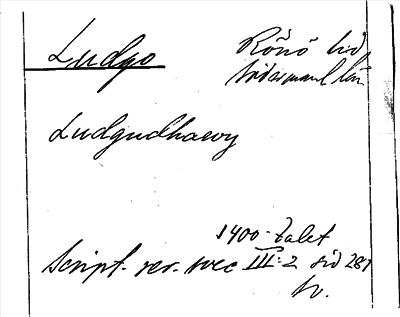 Ludgo
Rönö hd,
Södermanl. län
Ludgudhawy
1400-talet
Script. rer. svec III:2 sid 287